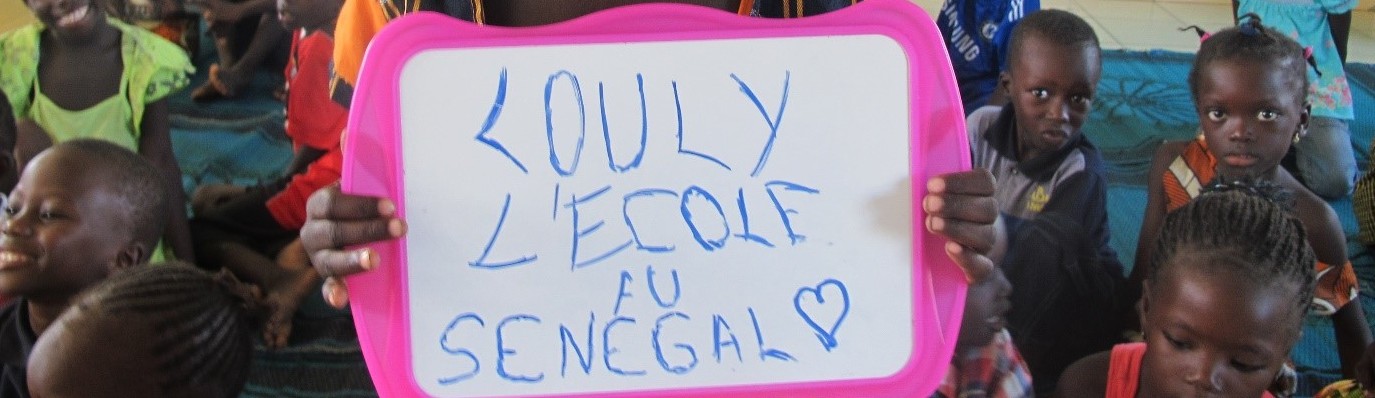 LOULY
L'ECOLE
AU
SENÉGAL ♡